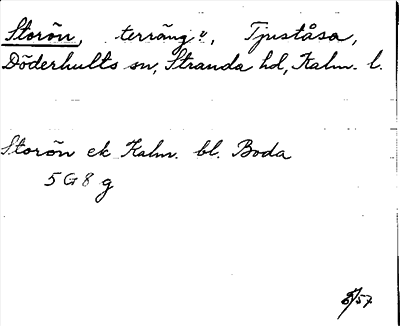 Storön, terräng, Tjuståsa,
Döderhults sn, Stranda hd, Kalm. l.
Storön ek Kalm. bl. Boda
5 G 8 g
/57